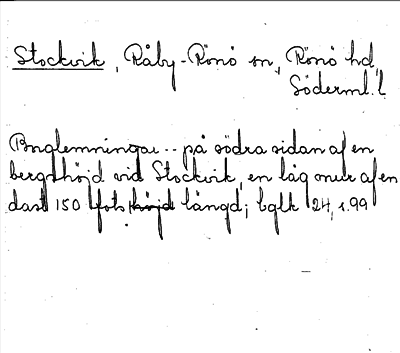 Stockvik, Råby-Rönö sn, Rönö hd,
Söderml. l.
Borglemningar -- på södra sidan af en
bergshöjd vid Stockvik, en låg mur af en
dast 150 fots höjd längd; bglk 24, s. 99